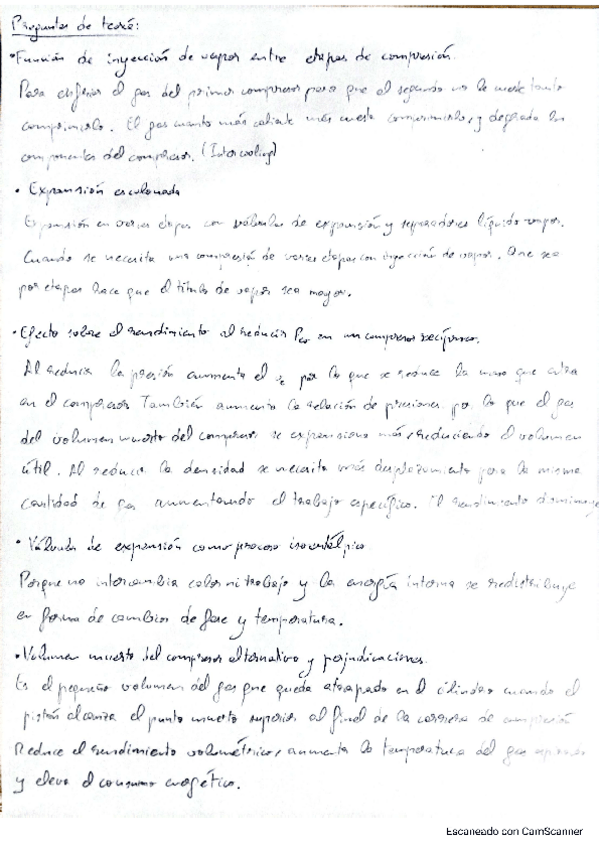 Preguntas de teoría:
• Función de inyección de vapor entre etapas de compresión.
Para enfriar el gas del primer compresor para que el segundo no le cueste tanto
comprimirlo. El gas cuanto más caliente más cuesta comprimirlo, y degrada los
componentes del compresor. (Intercooling)
• Expansión escalonada
Expansión en varias etapas con válvulas de expansión y separadores líquido vapor.
Cuando se necesita una compresión de varias etapas con inyección de vapor. Que sea
por etapas hace que el título de vapor sea mayor.
• Efecto sobre el rendimiento al reducir P en un compresor recíproco.
Al reducir la presión aumenta el por lo que se reduce la masa que entra
en el compresor. También aumenta la relación de presiones por lo que el gas
del volumen muerto del compresor se expansiona más, reduciendo el volumen
útil. Al reducir la densidad se necesita más desplazamiento para la misma
cantidad de gas aumentando el trabajo específico. El rendimiento disminuye
• Válvula de expansión como proceso isoentálpico
Porque no intercambia calor ni trabajo y la energía interna se redistribuye
en forma de cambios de fase y temperatura.
• Volumen muerto del compresor alternativo y perjudicaciones.
Es el pequeño volumen del gas que queda atrapado en el cilindro cuando el
pistón alcanza el punto muerto superior al final de la carrera de compresión
Reduce el rendimiento volumétrico, aumenta la temperatura del gas
y eleva el consumo energético.
Escaneado con CamScanner